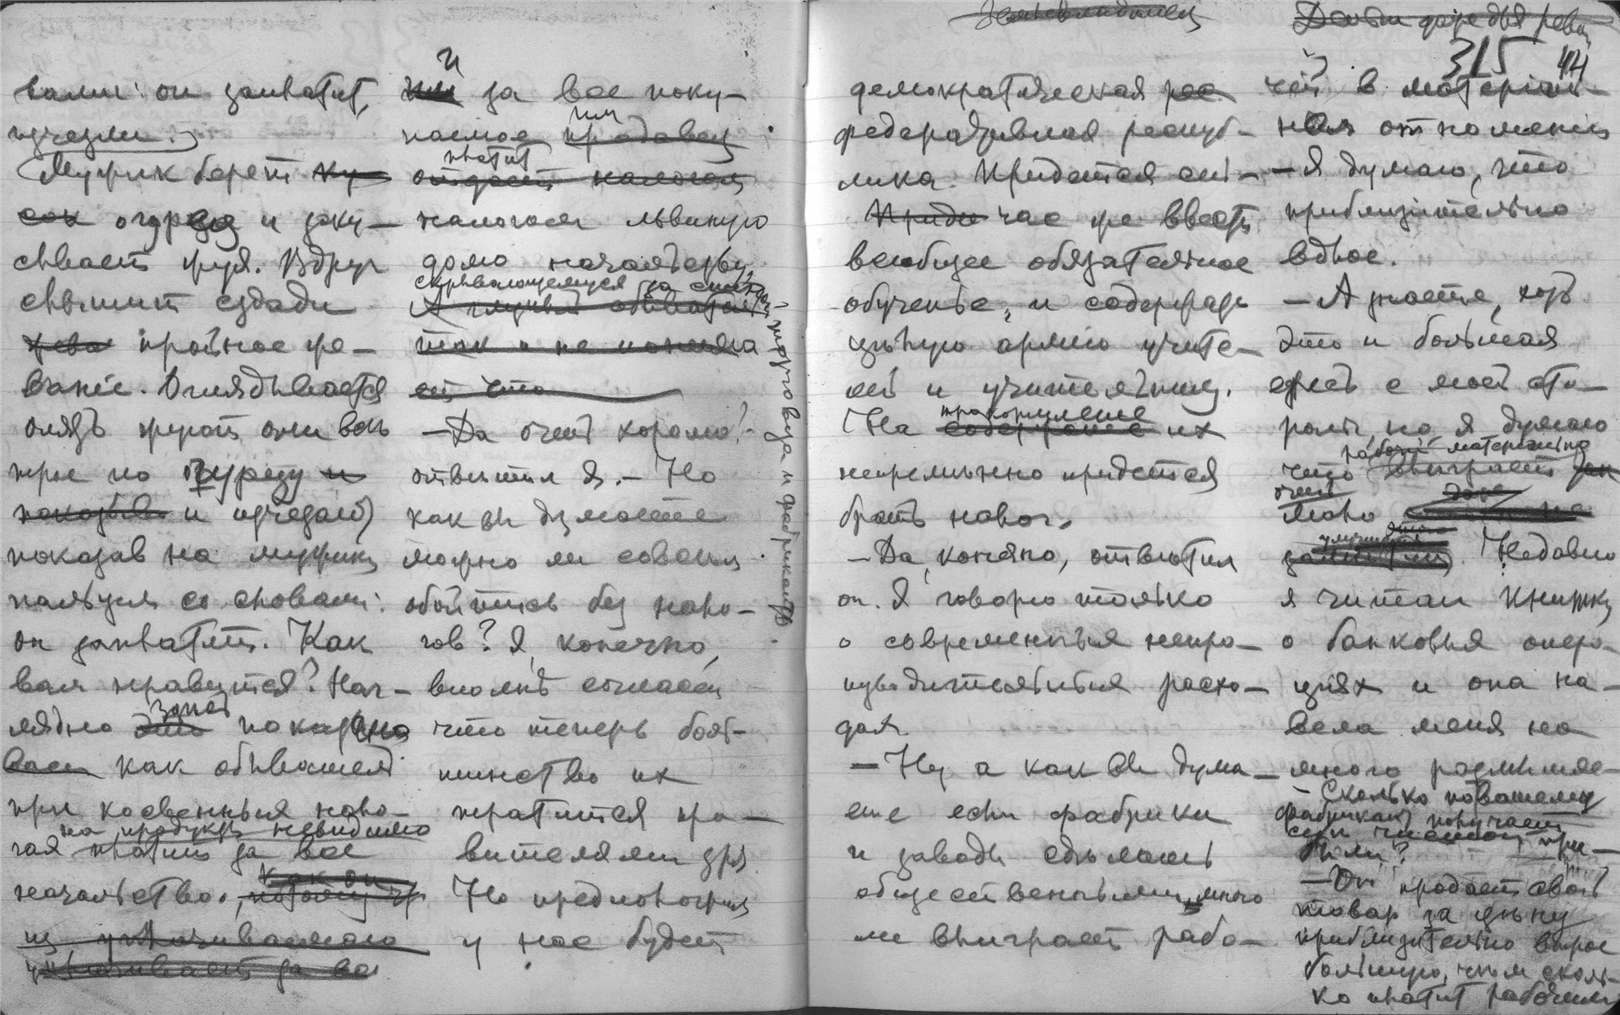 вами: он захватит,
исчезли.
Мужик берет
огурец и заку-
сывает жуя. Вдруг
слышит сзади
тройное же-
ваніе. Оглядывается
опять жуют они все
трое по огурцу
и исчезают
показав на мужика
пальцем со словами:
он захватит. Как
вам нравится? Наг-
лядно показано
как обыватель
при косвенных нало-
на продукты невидимо
гах платит за все
начальство.
и за все поку-
паемое им
платит
налогом львиную
долю начальству,
скрывающемуся за спиной
торговца и фабриканта.
— Да очень хорошо!
отвѣтил я. — Но
как вы думаете
можно ли совсем
обойтись без нало-
гов? Я, конечно,
вполнѣ согласен
что теперь боль-
шинство их
тратится пра-
вителями зря
Но предположим
у нас будет
315 44
демократическая
федеративная респуб-
лика. Придется сей-
час же ввести
всеобщее обязательное
обученье, и содержать
цѣлую армію учите-
лей и учительниц.
На прокормление их
непремѣнно придется
брать налог.
— Да, конечно, отвѣтил
он. Я говорю только
о современных непро-
изводительных расхо-
дах.
— Ну а как вы дума-
ете если фабрики
и заводы сдѣлать
общественными, много
ли выиграет рабо-
чій в матеріаль-
ном отношении
— Я думаю, что
приблизительно
вдвое.
— А знаете, хоть
это и большая
ересь с моей сто-
роны, но я думаю
рабочій матеріально
что выиграет
очень
мало. Недавно
я читал книжку
о банковых опера-
циях и она на-
вела меня на
много размышле-
— Сколько по вашему
фабрикант получает
при-
были?
— Он продает свой
товар за цѣну
приблизительно втрое
большую, чѣм сколь-
ко платит рабочему